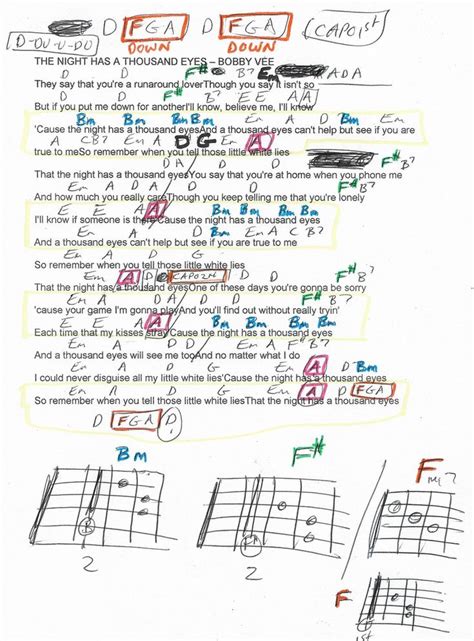 D FGA D FGA (CAPO1st)
D-DU-U-DU DOWN DOWN
THE NIGHT HAS A THOUSAND EYES – BOBBY VEE
D D F# B7 Em ADA
They say that you're a runaround loverThough you say it isn't so
D D F# B7 E E A A
But if you put me down for anotherI'll know, believe me, I'll know
Bm Bm Bm Bm A D Bm Em
'Cause the night has a thousand eyesAnd a thousand eyes can't help but see if you are
A C B7 Em A D G Em A
true to meSo remember when you tell those little white lies
D A D F# B7
That the night has a thousand eyesYou say that you're at home when you phone me
Em A D A D D F# B7
And how much you really careThough you keep telling me that you're lonely
E E A A Bm Bm Bm Bm
I'll know if someone is there'Cause the night has a thousand eyes
A D Bm Em A C B7
And a thousand eyes can't help but see if you are true to me
Em A D G
So remember when you tell those little white lies
Em A D CAPO2N F# B7
That the night has a thousand eyesOne of these days you're gonna be sorry
Em A D A D D F# B7
'cause your game I'm gonna playAnd you'll find out without really tryin'
E E A A Bm Bm Bm Bm
Each time that my kisses stray'Cause the night has a thousand eyes
A D D Em A F# B7
And a thousand eyes will see me tooAnd no matter what I do
Em A D G Em A D Bm
I could never disguise all my little white lies'Cause the night has a thousand eyes
Em A D G Em A D FGA
So remember when you tell those little white liesThat the night has a thousand eyes
D FGA D
Bm F# F maj7
2 2
F
1st